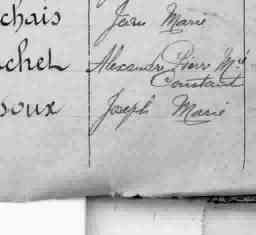 chais Jean Marie
chel Alexandre Pierre Mie
Constant
soux Joseph Marie